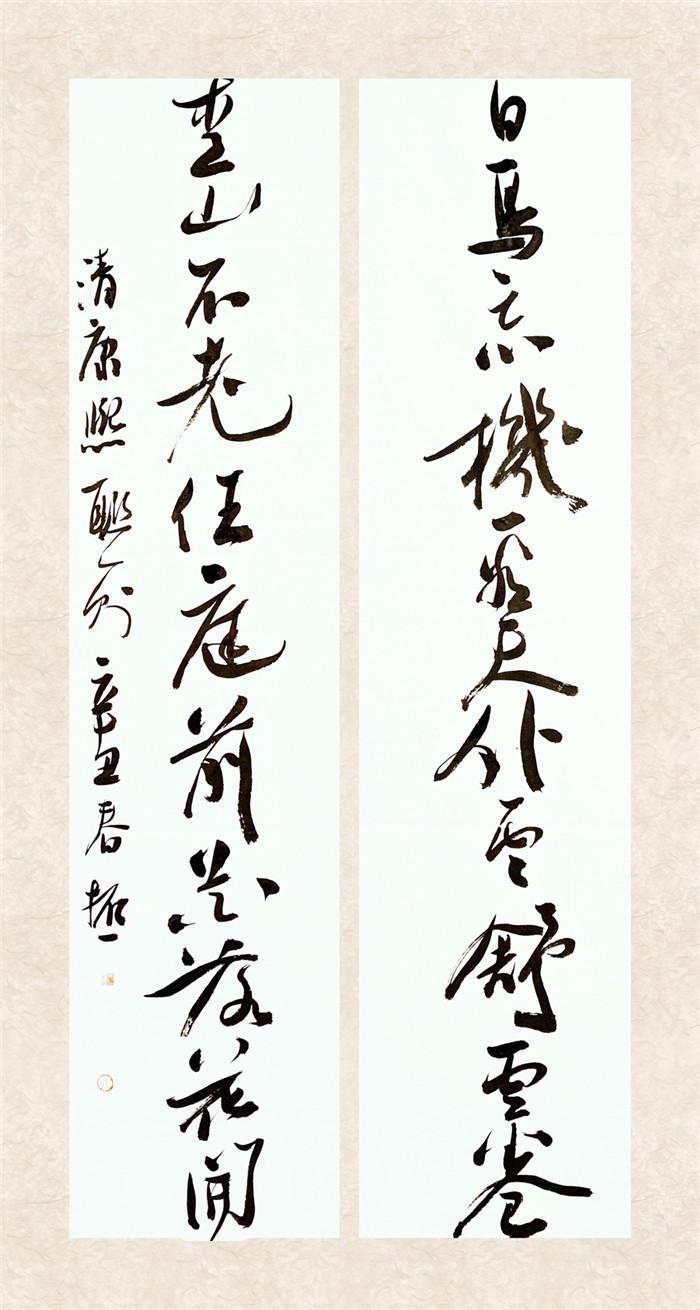 白鳥忘機看天外雲舒雲卷
青山不老任庭前花落花開
清康熙聯句 辛丑春